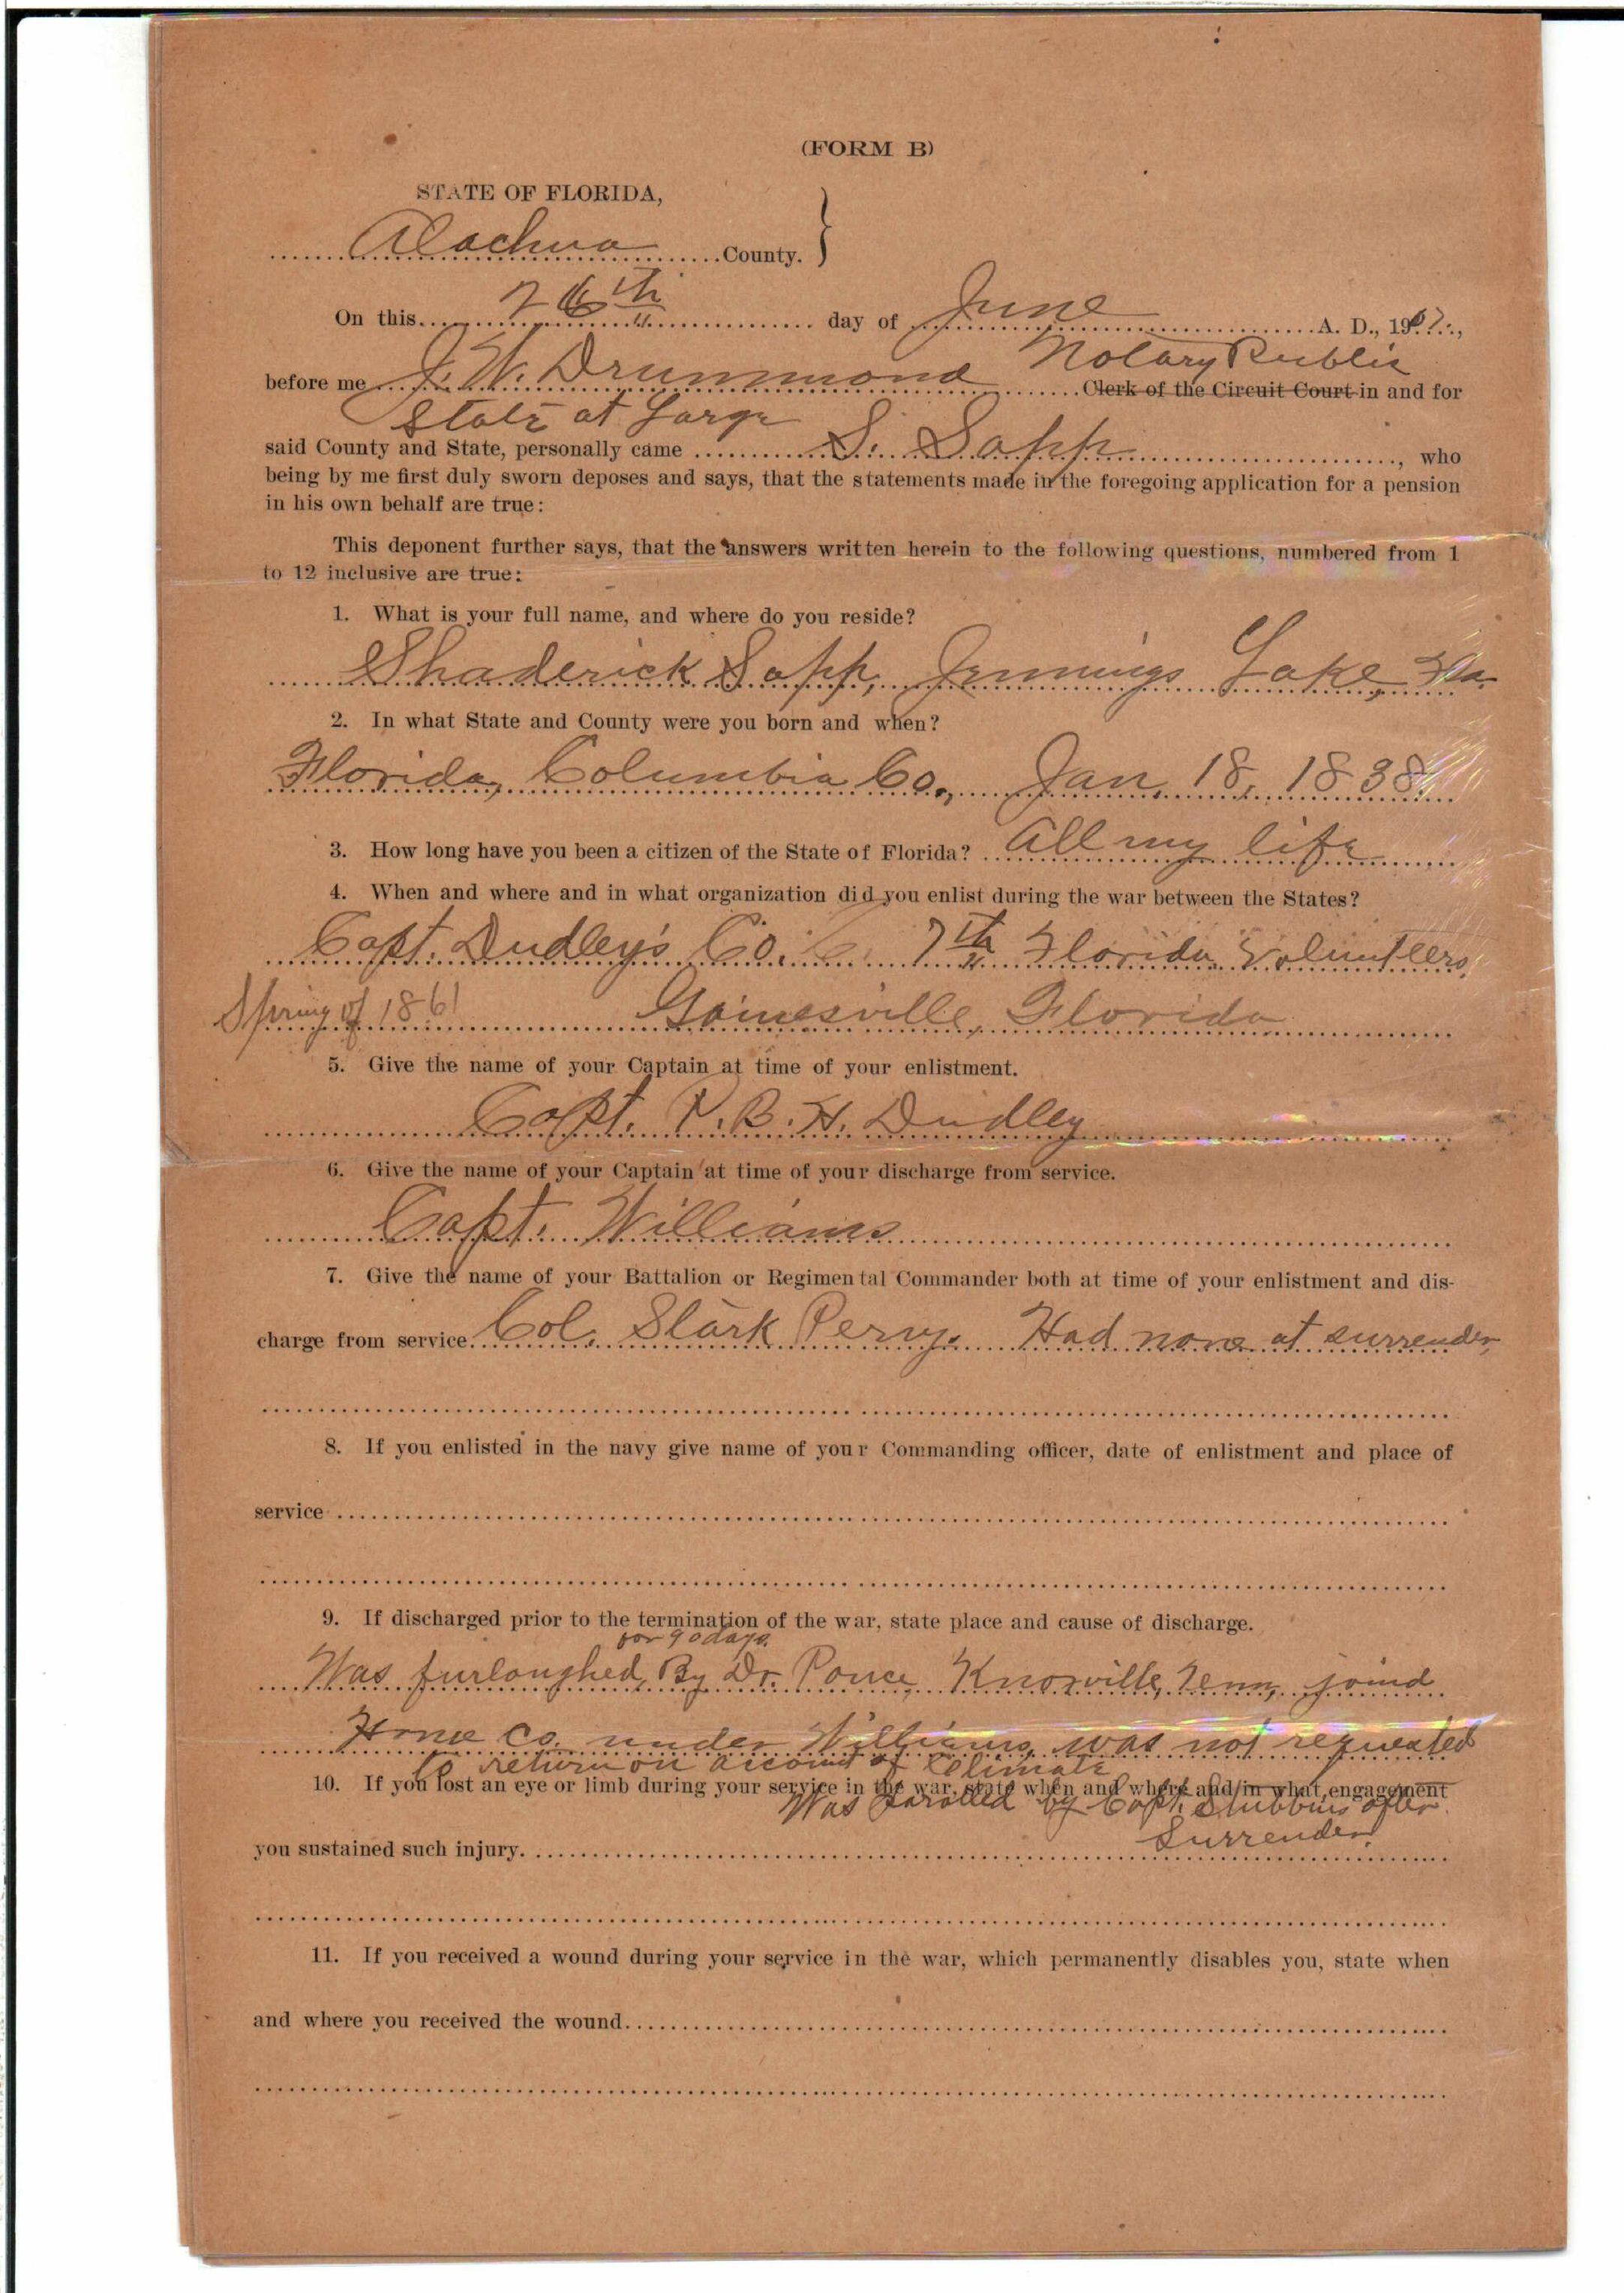 (FORM B)
STATE OF FLORIDA,
Alachua County. }
On this 26th day of June A. D., 1907,
Notary Public
before me J. W. Drummond Clerk of the Circuit Court in and for
State at Large
said County and State, personally came S. Sapp, who
being by me first duly sworn deposes and says, that the statements made in the foregoing application for a pension
in his own behalf are true:
This deponent further says, that the answers written herein to the following questions, numbered from 1
to 12 inclusive are true:
1. What is your full name, and where do you reside?
Shaderick Sapp, Jennings Lake, Fla.
2. In what State and County were you born and when?
Florida, Columbia Co., Jan. 18, 1838.
3. How long have you been a citizen of the State of Florida? All my life
4. When and where and in what organization did you enlist during the war between the States?
Capt. Dudley's Co. C. 7th Florida Volunteers,
Spring of 1861 Gainesville, Florida
5. Give the name of your Captain at time of your enlistment.
Capt. P. B. H. Dudley
6. Give the name of your Captain at time of your discharge from service.
Capt. Williams
7. Give the name of your Battalion or Regimental Commander both at time of your enlistment and dis-
charge from service. Col. Stark Perry. Had none at surrender,
8. If you enlisted in the navy give name of your Commanding officer, date of enlistment and place of
service
9. If discharged prior to the termination of the war, state place and cause of discharge.
for 90 days
Was furloughed By Dr. Ponce, Knoxville, Tenn, joind
Home Co. under Williams, was not requested
to return on account of Climate
10. If you lost an eye or limb during your service in the war, state when and where and in what engagement
Was Parolled by Capt. Stubbins after
you sustained such injury. Surrender.
11. If you received a wound during your service in the war, which permanently disables you, state when
and where you received the wound